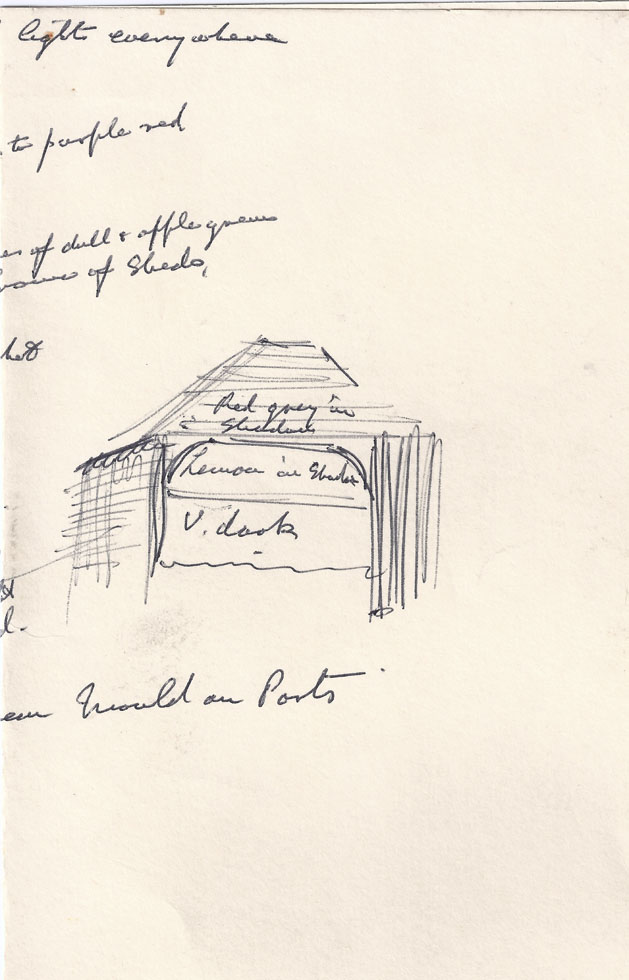 lights everywhere
to purple red
of dull & apple greens
of Sheds,
hot
Red grey in
Shadows
Lemon in Shadow
V. dark
Mould on Posts